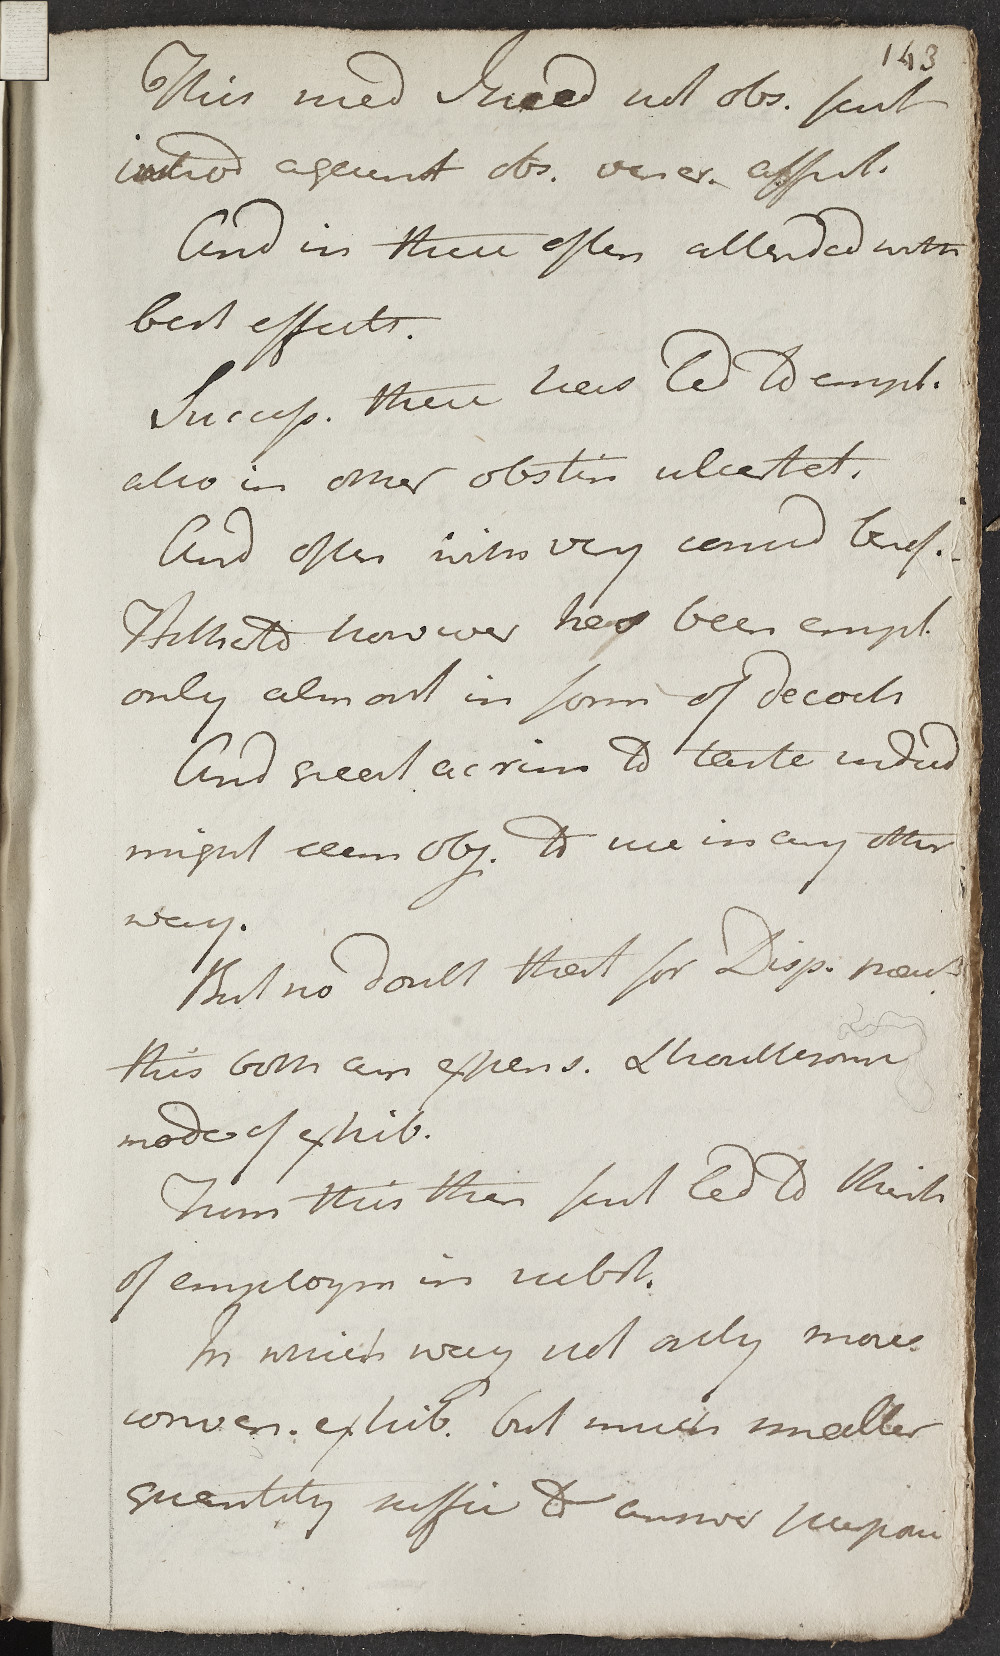 143
This med Indeed not obs. first
introd against obs. vener. affect.
And in these often attended with
best effects.
Success. these has led to empl.
also in other obstin ulcerat.
And often with very consid benef.
Hitherto however has been empl.
only almost in form of decoct
And great acrim to taste indeed
might seem obj. to use in any other
way.
But no doubt that for Disp.
this both an expens. & troublesom
mode of exhib.
From this then first led to think
of employm in subst.
In which way not only more
conven. exhib. but much smaller
quantity suffic to answer purpose